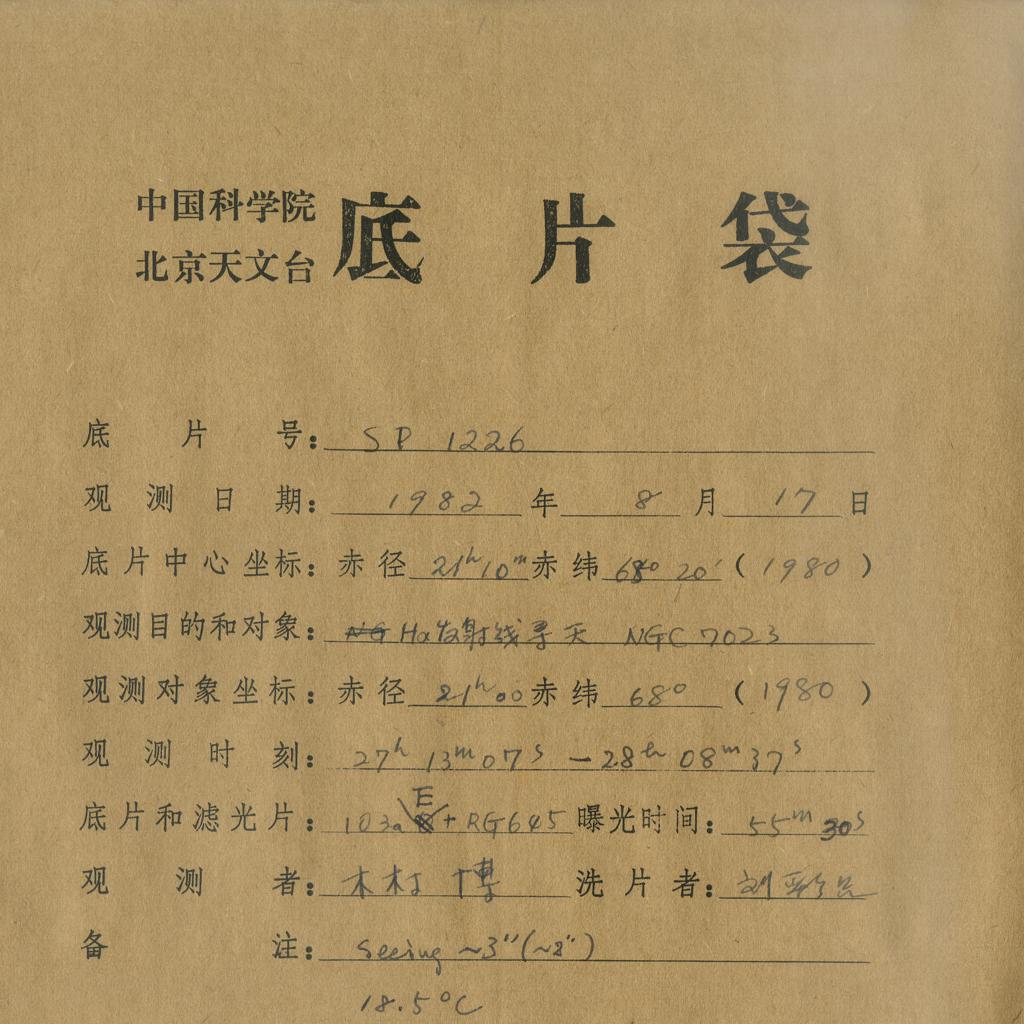 中国科学院
北京天文台
底片袋
底片号：SP 1226
观测日期：1982年8月17日
底片中心坐标：赤径 21h 10m 赤纬 68° 20′ (1980)
观测目的和对象：NG Hα发射线寻天 NGC 7023
观测对象坐标：赤径 21h 00 赤纬 68° (1980)
观测时刻：27h 13m 07s — 28h 08m 37s
底片和滤光片：103aE + RG645 曝光时间：55m 30s
观测者：木村 博 洗片者：刘
备注：Seeing ~3″(~2″)
18.5°C